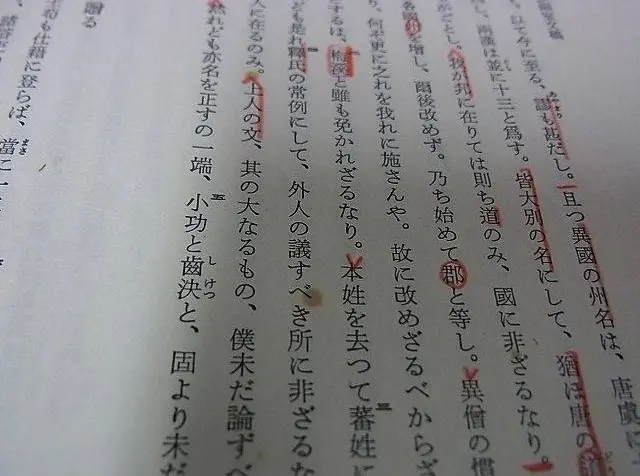 以て今に至る、も甚だし。且つ異國の州名は、唐虞に
兩漢は並に十三と爲す。皆大別の名にして、猶ほ唐の
ごとし。我が邦に在りては則ち道のみ、國に非ざるなり。
を増し、爾後改めず。乃ち始めて郡と等し。異僧の慣
り、何ぞ更に之れを我れに施さんや。故に改めざるべからざ
するは、と雖も免かれざるなり。本姓を去つて蕃姓に
ども是れ釋氏の常例にして、外人の議すべき所に非ざるな
人に在るのみ。上人の文、其の大なるもの、僕未だ論ずべ
れども亦名を正すの一端、小功と齒決と、固より未だ
贈る
和も仕籍に登らば、當に一